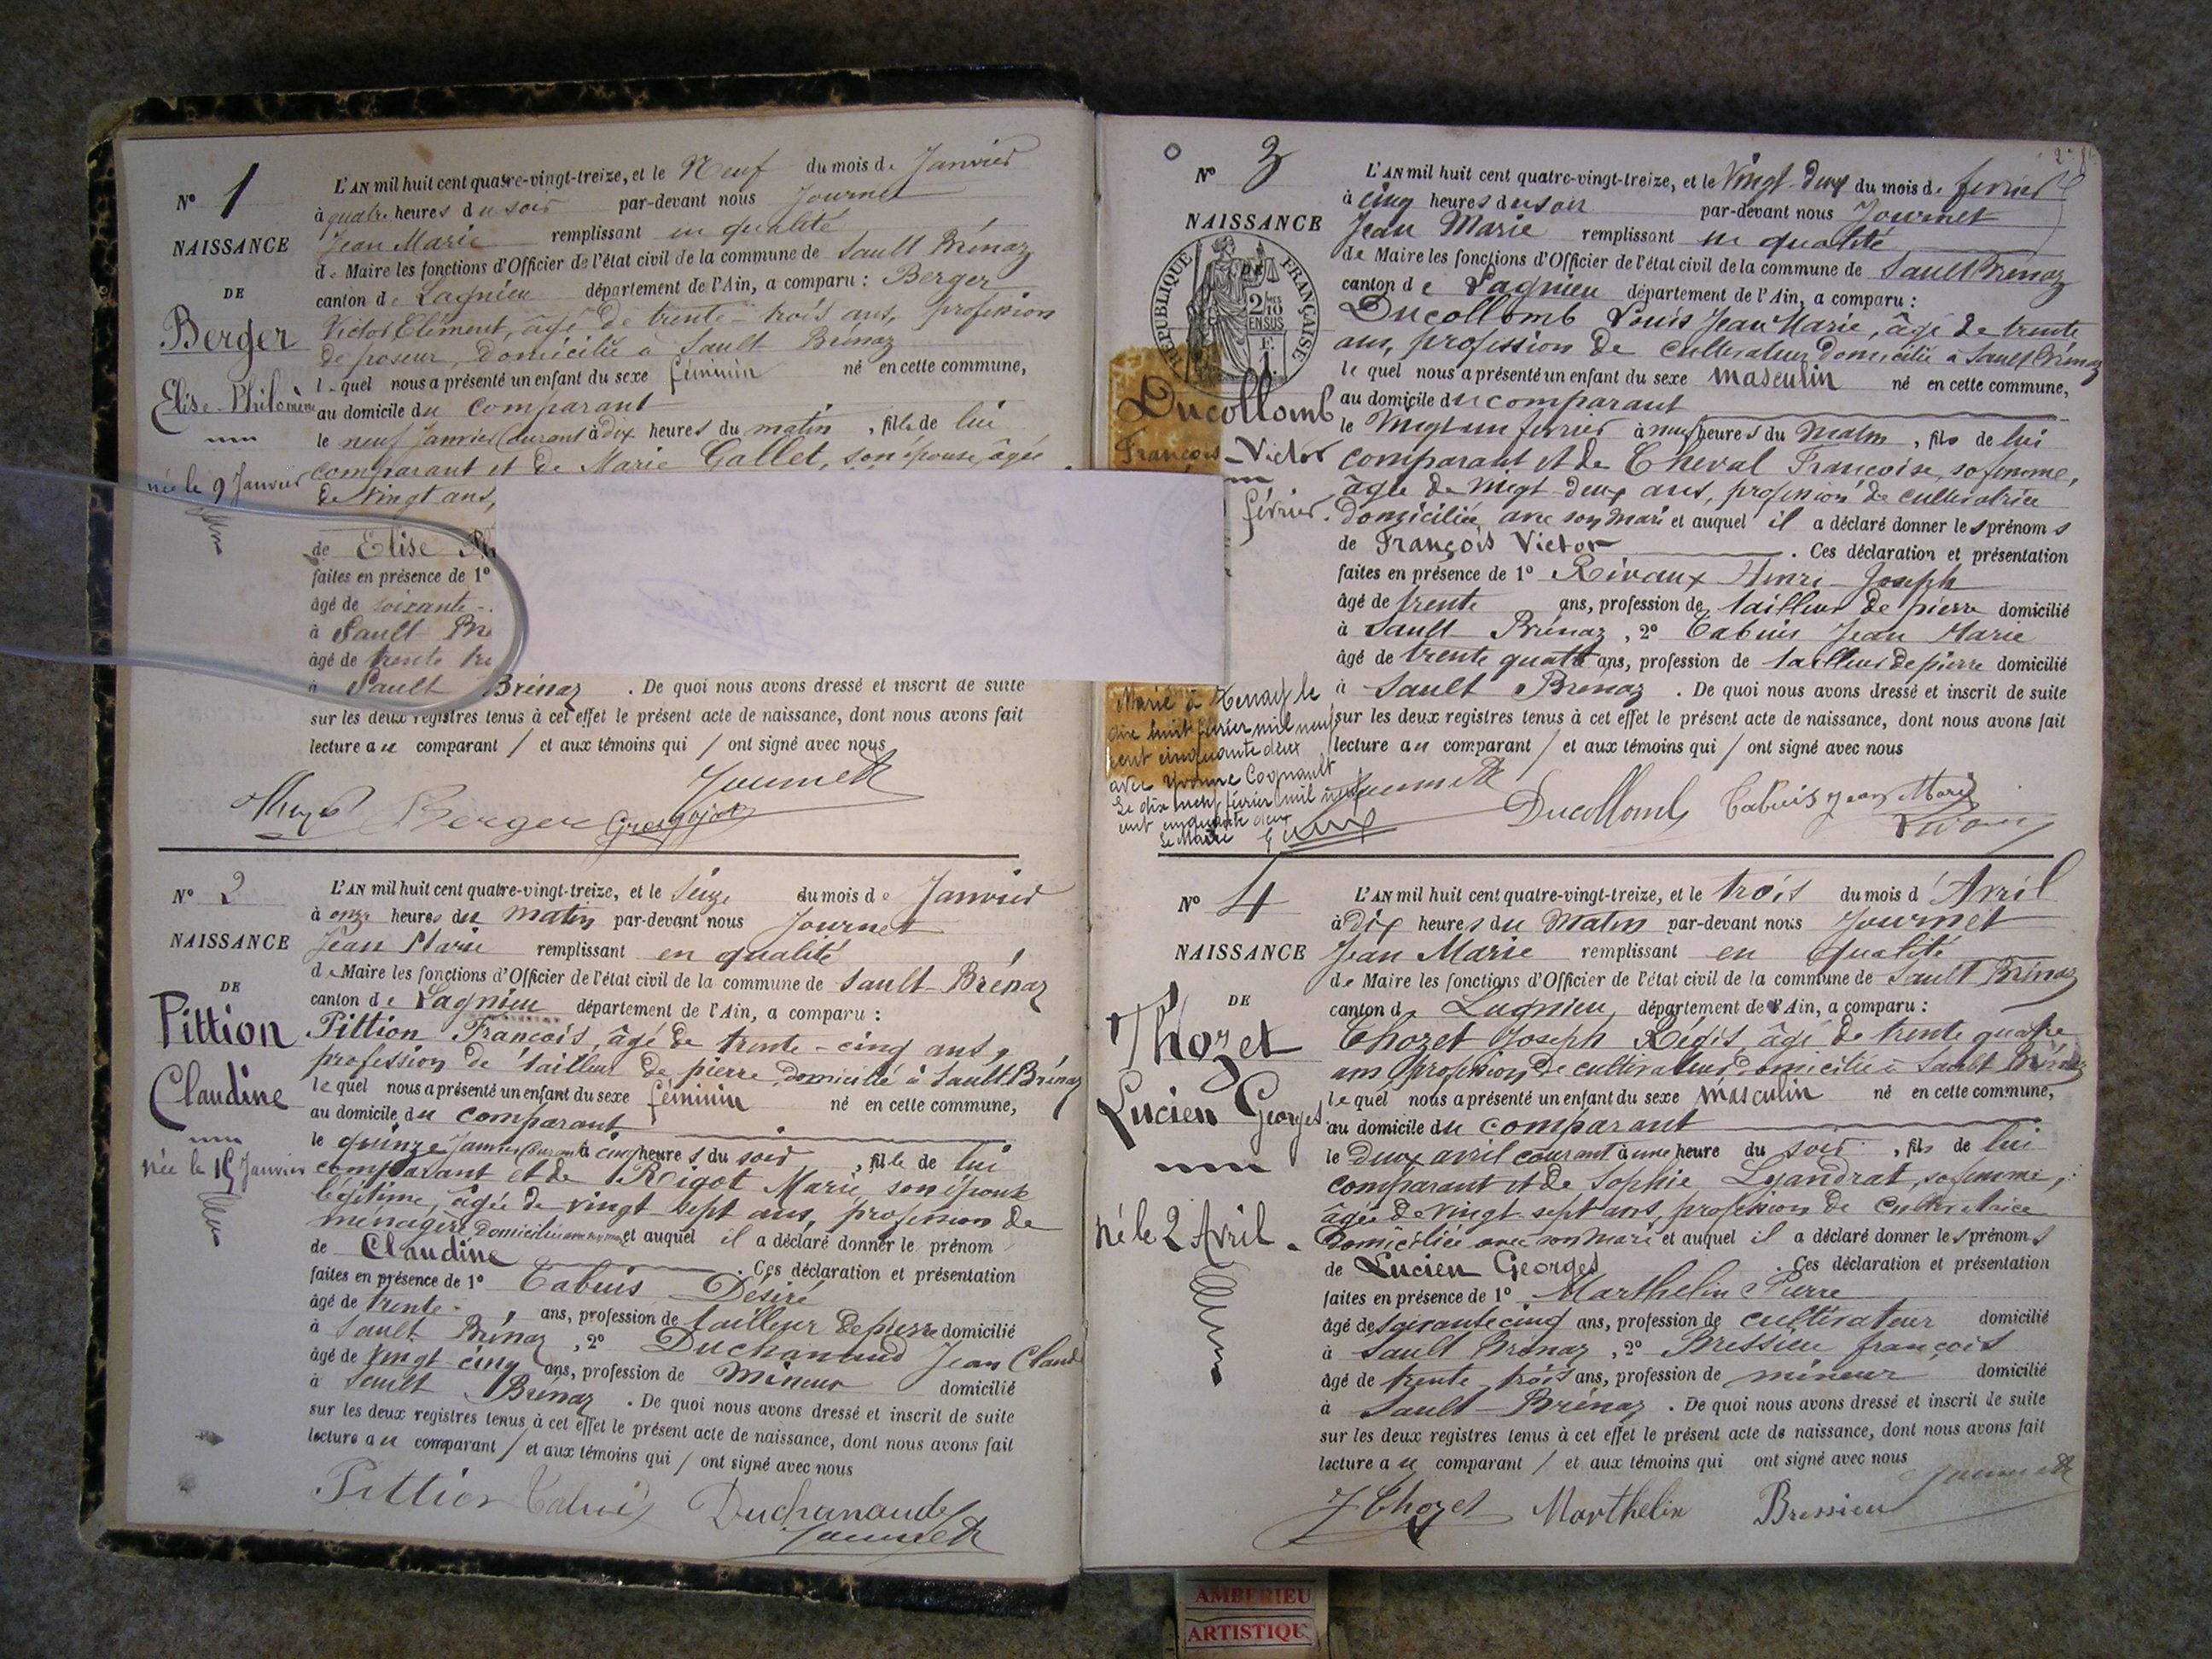 N° 1
NAISSANCE
DE
Berger
Elise-Philomène
née le 9 Janvier
L'AN mil huit cent quatre-vingt-treize, et le Neuf du mois de Janvier
à quatre heures du soir par-devant nous Journet
Jean Marie remplissant en qualité
de Maire les fonctions d'Officier de l'état civil de la commune de Sault Brénaz
canton de Lagnieu département de l'Ain, a comparu : Berger
Victor Clément, âgé de trente-trois ans, profession
de poseur, domicilié à Sault Brénaz
lequel nous a présenté un enfant du sexe féminin né en cette commune,
au domicile du comparant
le neuf Janvier Courant à dix heures du matin, fille de lui
comparant et de Marie Gallet, son épouse, âgée
de vingt ans,
de Elise
faites en présence de 1°
âgé de soixante-
à Sault
âgé de trente
à Sault Brénaz . De quoi nous avons dressé et inscrit de suite
sur les deux registres tenus à cet effet le présent acte de naissance, dont nous avons fait
lecture au comparant / et aux témoins qui / ont signé avec nous
Journet
Berger
N° 2
NAISSANCE
DE
Pittion
Claudine
née le 15 Janvier
L'AN mil huit cent quatre-vingt-treize, et le Seize du mois de Janvier
à onze heures du matin par-devant nous Journet
Jean Marie remplissant en qualité
de Maire les fonctions d'Officier de l'état civil de la commune de Sault-Brénaz
canton de Lagnieu département de l'Ain, a comparu :
Pittion François, âgé de trente-cinq ans,
profession de tailleur de pierre domicilié à Sault Brénaz
lequel nous a présenté un enfant du sexe féminin né en cette commune,
au domicile du comparant
le quinze Janvier Courant à cinq heures du soir, fille de lui
comparant et de Rigot Marie, son épouse
légitime, âgée de vingt sept ans, profession de
ménagère, domiciliée avec son mari et auquel il a déclaré donner le prénom
de Claudine . Ces déclaration et présentation
faites en présence de 1° Tabuis Désiré
âgé de trente ans, profession de tailleur de pierre domicilié
à Sault Brénaz, 2° Duchanaud Jean Claude
âgé de vingt-cinq ans, profession de mineur domicilié
à Sault Brénaz . De quoi nous avons dressé et inscrit de suite
sur les deux registres tenus à cet effet le présent acte de naissance, dont nous avons fait
lecture au comparant / et aux témoins qui / ont signé avec nous
Pittion Tabuis Duchanaud
Journet
N° 3
NAISSANCE
DE
RÉPUBLIQUE FRANÇAISE
2/10 EN SUS
Ducollomb
François-Victor
février.
Marié à le
dix huit février mil neuf
cent cinquante deux
avec Yvonne Cognault
Le dix neuf février mil neuf
cent cinquante deux
Le Maire
L'AN mil huit cent quatre-vingt-treize, et le Vingt-deux du mois de février
à cinq heures du soir par-devant nous Journet
Jean Marie remplissant en qualité
de Maire les fonctions d'Officier de l'état civil de la commune de Sault Brénaz
canton de Lagnieu département de l'Ain, a comparu :
Ducollomb Louis Jean Marie, âgé de trente
ans, profession de cultivateur domicilié à Sault Brénaz
lequel nous a présenté un enfant du sexe masculin né en cette commune,
au domicile du comparant
le vingt un février à neuf heures du matin, fils de lui
comparant et de Cheval Françoise, sa femme,
âgée de vingt-deux ans, profession de cultivatrice
domiciliée avec son mari et auquel il a déclaré donner les prénoms
de François Victor . Ces déclaration et présentation
faites en présence de 1° Rivaux Henri-Joseph
âgé de trente ans, profession de tailleur de pierre domicilié
à Sault Brénaz, 2° Tabuis Jean Marie
âgé de trente quatre ans, profession de tailleur de pierre domicilié
à Sault Brénaz . De quoi nous avons dressé et inscrit de suite
sur les deux registres tenus à cet effet le présent acte de naissance, dont nous avons fait
lecture au comparant / et aux témoins qui / ont signé avec nous
Journet Ducollomb Tabuis Jean Marie
Rivaux
N° 4
NAISSANCE
DE
Thozet
Lucien Georges
né le 2 Avril
L'AN mil huit cent quatre-vingt-treize, et le trois du mois d'Avril
à dix heures du Matin par-devant nous Journet
Jean Marie remplissant en qualité
de Maire les fonctions d'Officier de l'état civil de la commune de Sault Brénaz
canton de Lagnieu, département de l'Ain, a comparu :
Thozet Joseph Régis, âgé de trente quatre
ans profession de cultivateur domicilié à Sault Brénaz
lequel nous a présenté un enfant du sexe masculin né en cette commune,
au domicile du comparant
le deux avril courant à une heure du soir, fils de lui
comparant et de Sophie Lyandrat, sa femme,
âgée de vingt-sept ans, profession de cultivatrice
domiciliée avec son mari et auquel il a déclaré donner les prénoms
de Lucien Georges . Ces déclaration et présentation
faites en présence de 1° Marthelin Pierre
âgé de soixante cinq ans, profession de cultivateur domicilié
à Sault Brénaz, 2° Bressieu françois
âgé de trente-trois ans, profession de mineur domicilié
à Sault-Brénaz . De quoi nous avons dressé et inscrit de suite
sur les deux registres tenus à cet effet le présent acte de naissance, dont nous avons fait
lecture au comparant / et aux témoins qui ont signé avec nous
Journet
Thozet Marthelin Bressieu
AMBERIEU
ARTISTIQU